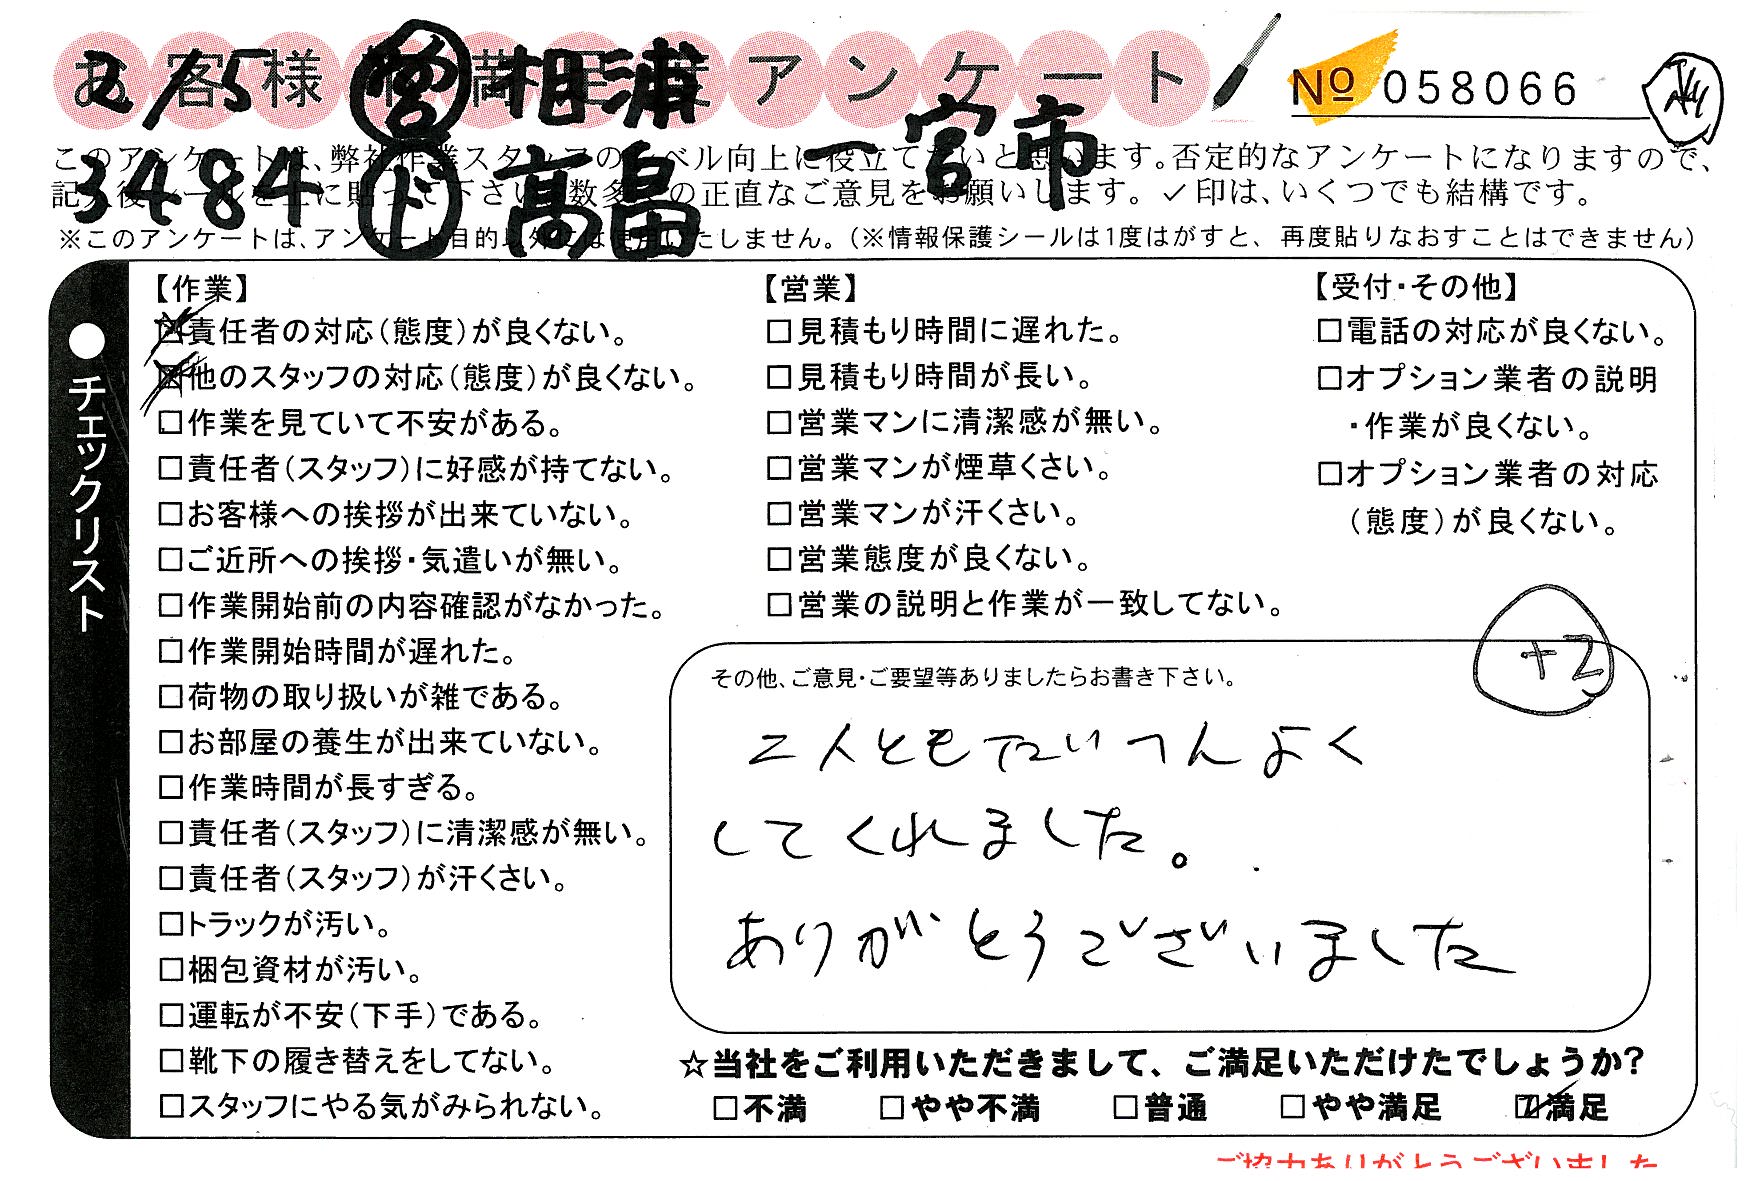 お客様 満足度アンケート
№ 058066
2/5 ㊢ 相浦 一宮市
3484 ㋣ 高畠
このアンケートは、弊社作業スタッフのレベル向上に役立てたいと思います。否定的なアンケートになりますので、
記入後シールを上に貼って下さい。数多くの正直なご意見をお願いします。✓印は、いくつでも結構です。
※このアンケートは、アンケート目的以外には使用いたしません。（※情報保護シールは1度はがすと、再度貼りなおすことはできません）
●チェックリスト
【作業】
☑責任者の対応（態度）が良くない。
☑他のスタッフの対応（態度）が良くない。
□作業を見ていて不安がある。
□責任者（スタッフ）に好感が持てない。
□お客様への挨拶が出来ていない。
□ご近所への挨拶・気遣いが無い。
□作業開始前の内容確認がなかった。
□作業開始時間が遅れた。
□荷物の取り扱いが雑である。
□お部屋の養生が出来ていない。
□作業時間が長すぎる。
□責任者（スタッフ）に清潔感が無い。
□責任者（スタッフ）が汗くさい。
□トラックが汚い。
□梱包資材が汚い。
□運転が不安（下手）である。
□靴下の履き替えをしてない。
□スタッフにやる気がみられない。
【営業】
□見積もり時間に遅れた。
□見積もり時間が長い。
□営業マンに清潔感が無い。
□営業マンが煙草くさい。
□営業マンが汗くさい。
□営業態度が良くない。
□営業の説明と作業が一致してない。
【受付・その他】
□電話の対応が良くない。
□オプション業者の説明
・作業が良くない。
□オプション業者の対応
（態度）が良くない。
+2
その他、ご意見・ご要望等ありましたらお書き下さい。
二人ともたいへんよく
してくれました。
ありがとうございました
☆当社をご利用いただきまして、ご満足いただけたでしょうか？
□不満 □やや不満 □普通 □やや満足 ☑満足
ご協力ありがとうございました